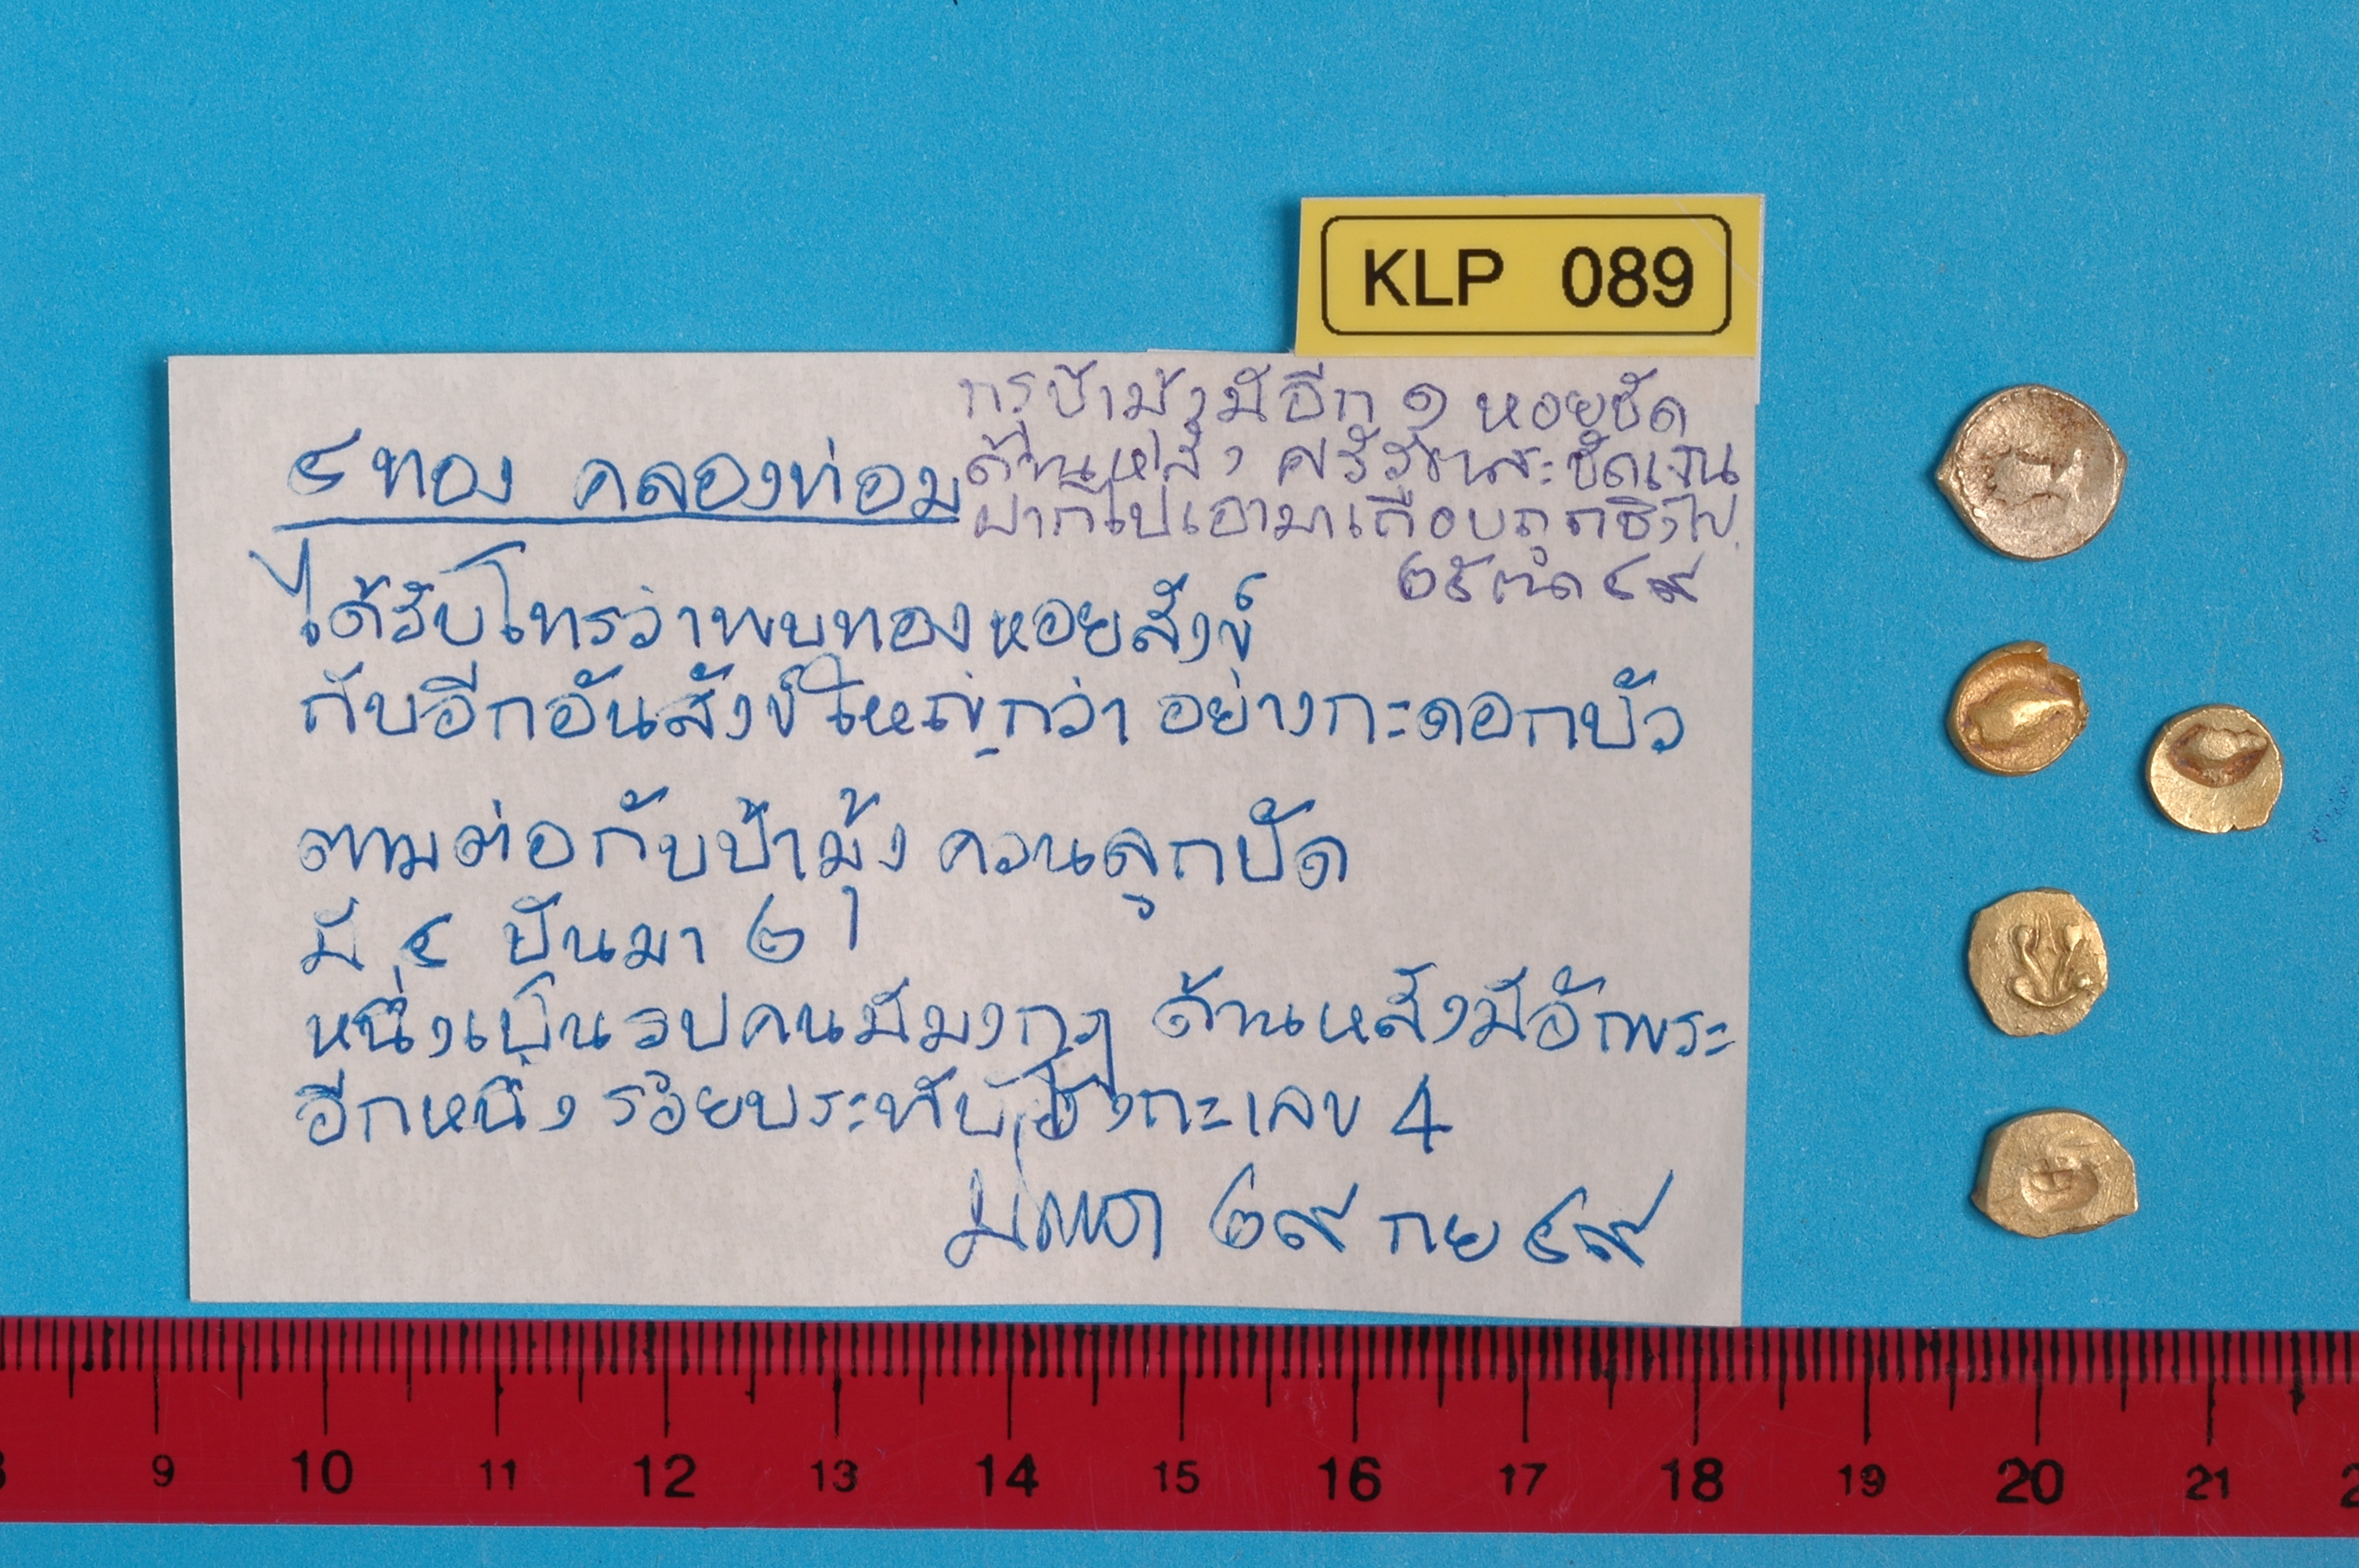 KLP 089
กรุป้ามุ้งมีอีก ๑ หอยชัด
ด้านหลัง ศรีวัชนะชัดเจน
ฝากไปเอามาเกือบถูกชิงไป
๒๕ ตค ๔๙
๔ ทอง คลองท่อม
ได้รับโทรว่าพบทองหอยสังข์
กับอีกอันสังข์ใหญ่กว่า อย่างกะดอกบัว
ตามต่อกับป้ามุ้ง ควนลูกปัด
มี ๔ ปันมา ๒
หนึ่งเป็นรูปคนมีมงกุฎ ด้านหลังมีอักพระ
อีกหนึ่ง รอยประทับ กะเลข 4
๒๙ กย ๔๙
8 9 10 11 12 13 14 15 16 17 18 19 20 21 2